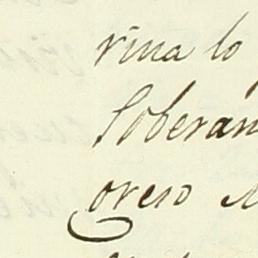 rina lo
Soberan
oreso